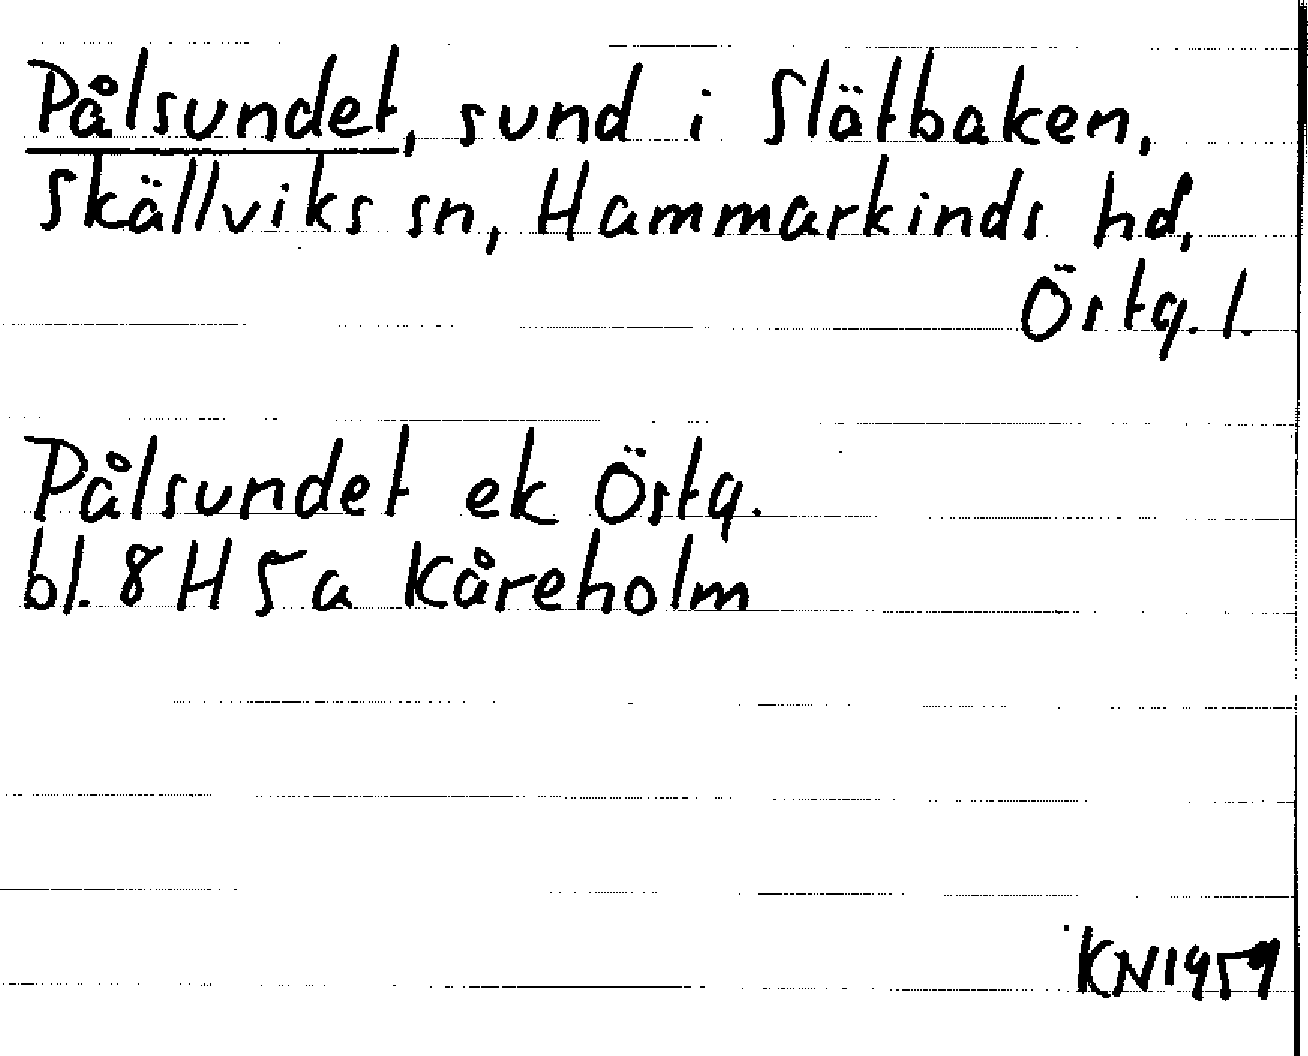 Pålsundet, sund i Slätbaken,
Skällviks sn, Hammarkinds hd,
Östg. l.
Pålsundet ek Östg.
bl. 8 H 5 a Kåreholm
KN 1959